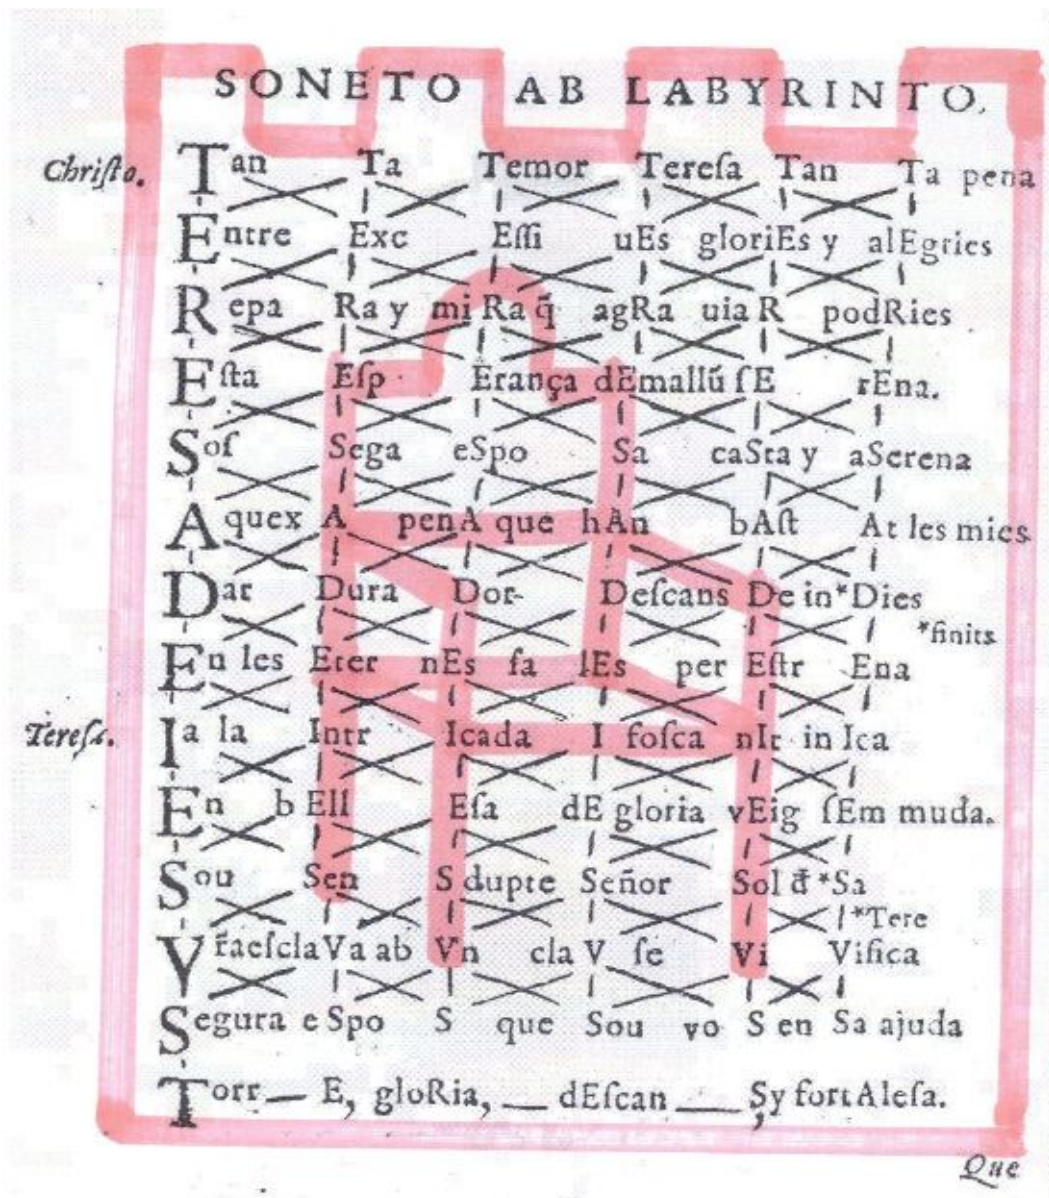 SONETO AB LABYRINTO.
Chriſto. Tan Ta Temor Tereſa Tan Ta pena
Entre Exc Eſſi uEs gloriEs y alEgries
Repa Ra y mi Ra q̃ agRa uia R podRies
Eſta Eſp Erança dEmallũ ſE rEna.
Soſ Sega eSpo Sa caSta y aSerena
A quex A penA que hAn bAſt At les mies
Dar Dura Dor- Deſcans De in*Dies
*finits
En les Eter nEs fa lEs per Eſtr Ena
Tereſa. Ia la Intr Icada I foſca nIt in Ica
En b Ell Eſa dE gloria vEig ſEm muda.
Sou Sen S dupte Señor Sol đ *Sa
*Tere
Vr̃aeſclaVa ab Vn cla V ſe Vi Vifica
Segura e Spo S que Sou vo S en Sa ajuda
Torr — E, gloRia, — dEſcan — S, y fort Aleſa.
Que